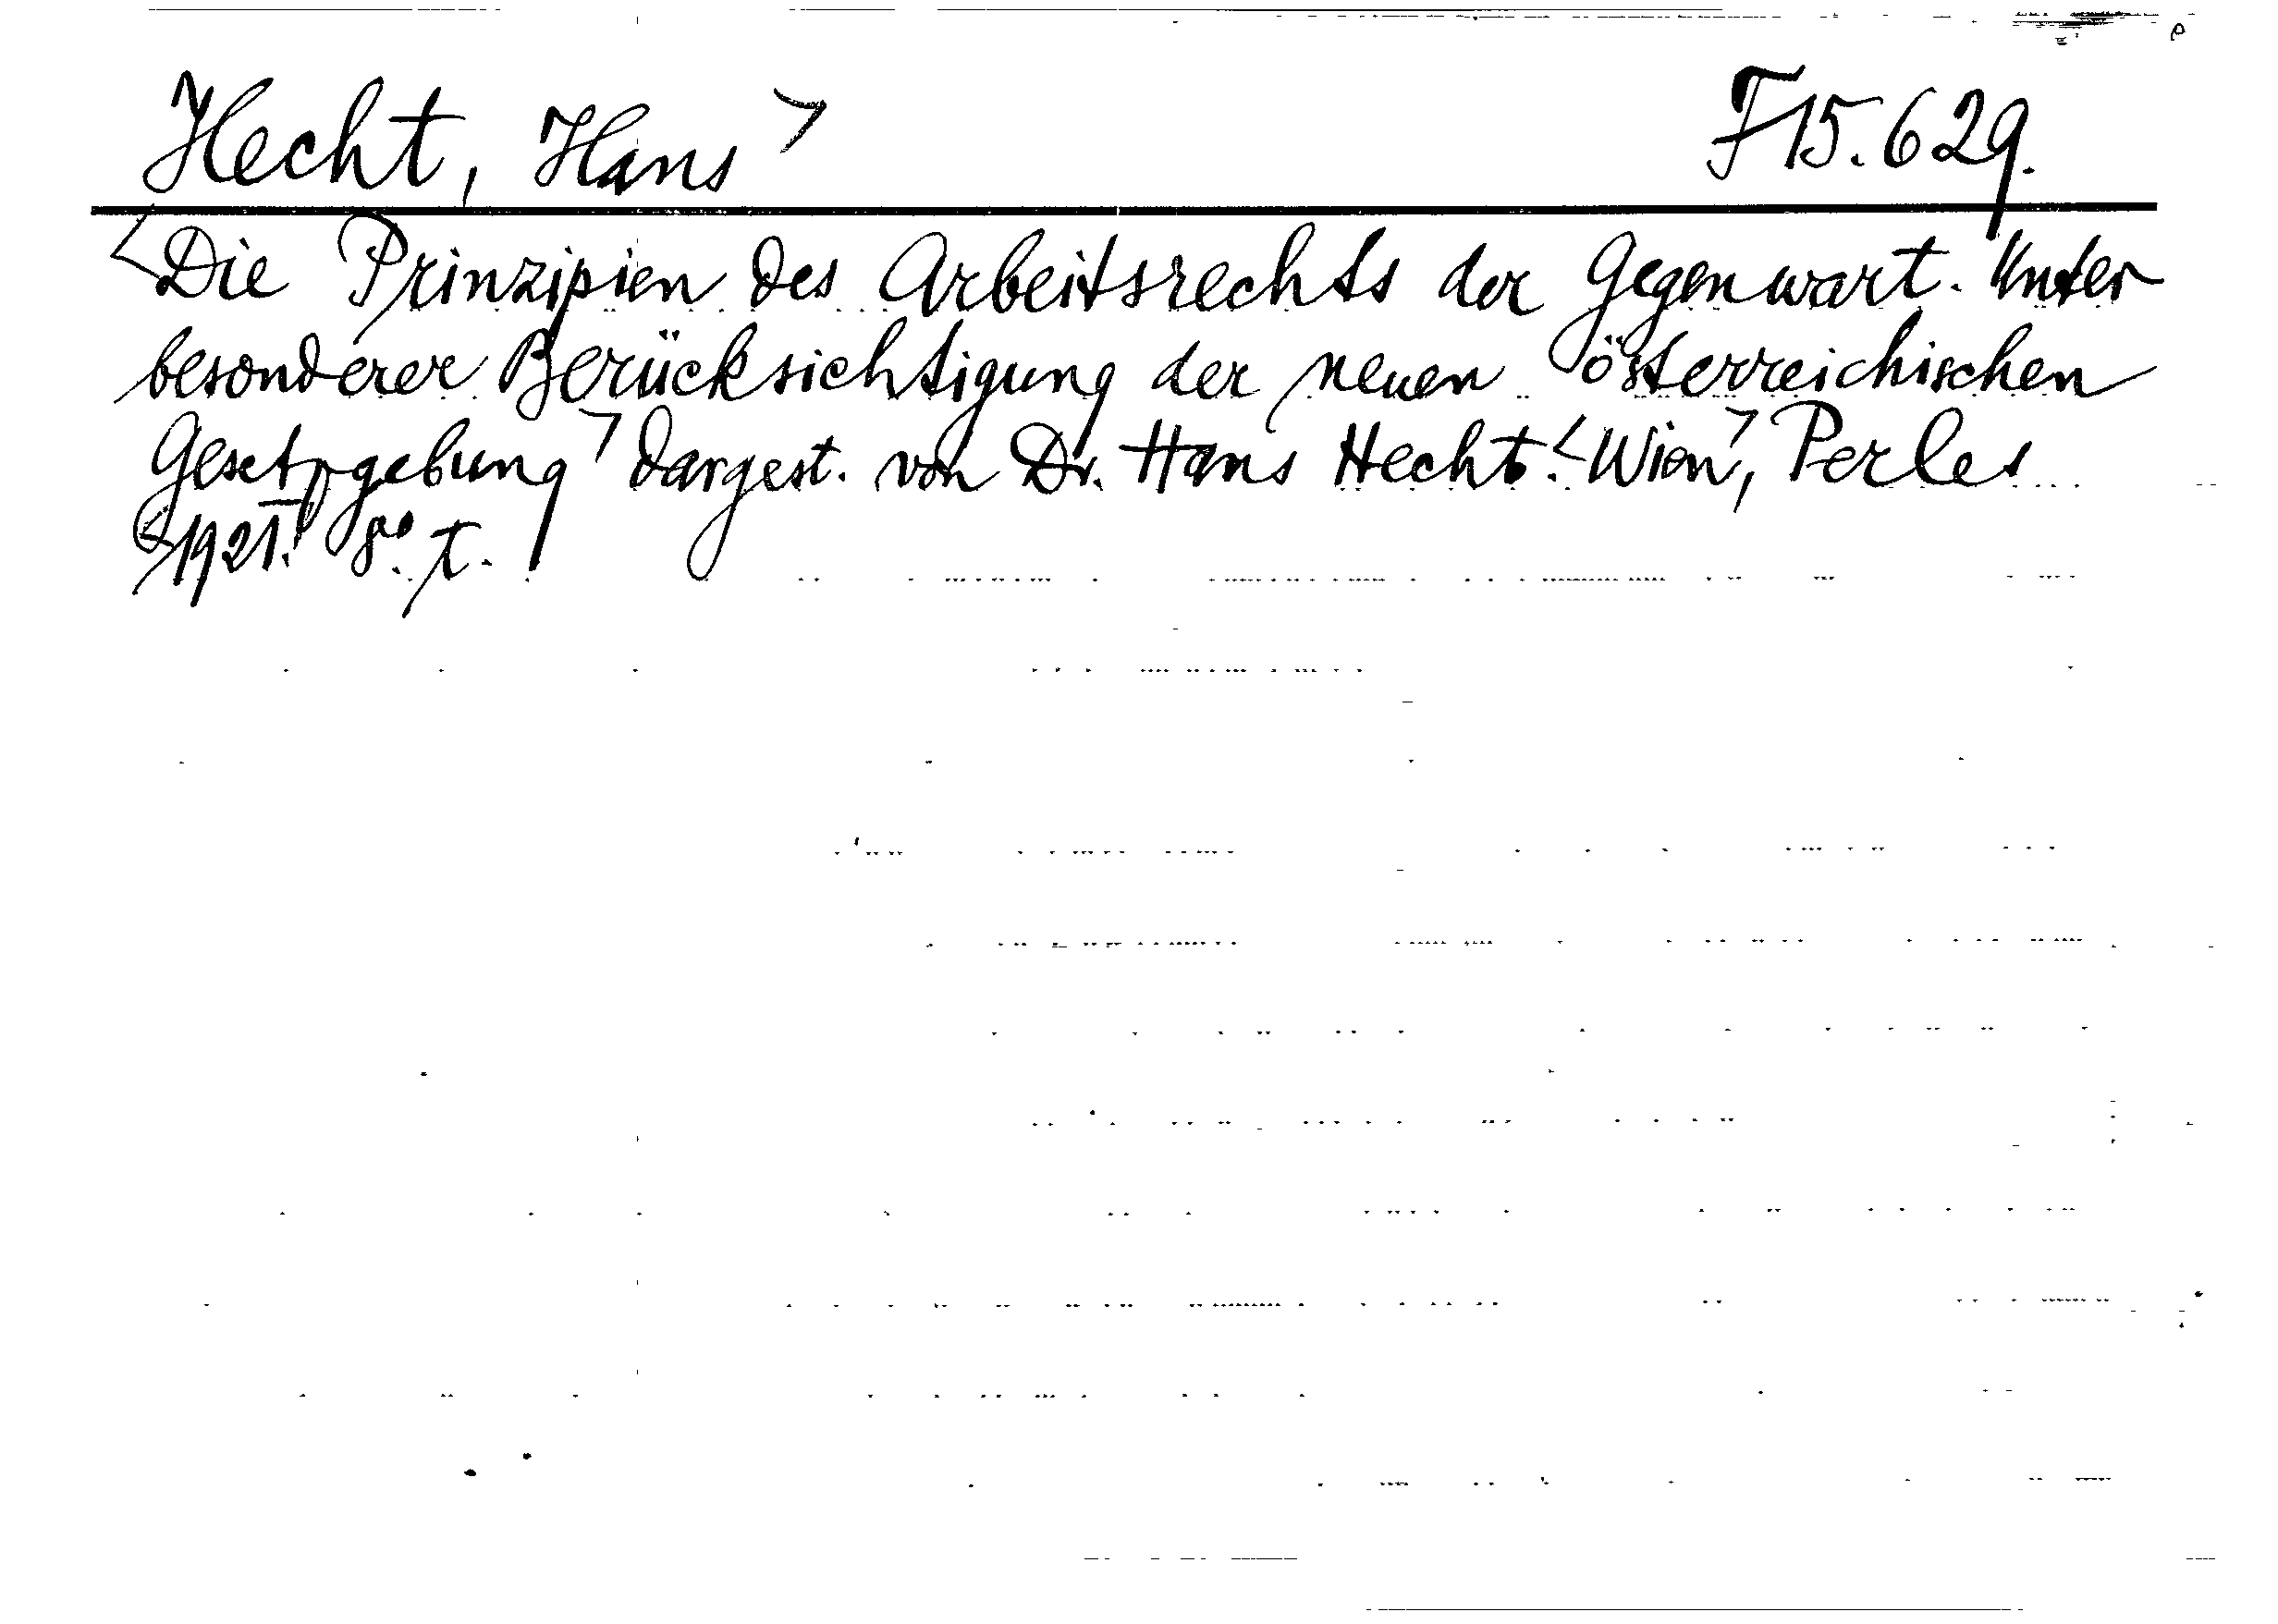 Hecht, Hans> F 15.629.
<Die Prinzipien des Arbeitsrechts der Gegenwart. Unter
besonderer Berücksichtigung der neuen österreichischen
Gesetzgebung> dargest. von Dr. Hans Hecht. <Wien>, Perles
<1921.> 8°. t.